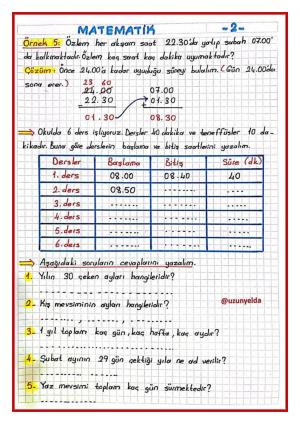 MATEMATİK -2-
Örnek 5: Özlem her akşam saat 22.30'da yatıp sabah 07.00'
da kalkmaktadır. Özlem kaç saat kaç dakika uyumaktadır?
Çözüm: Önce 24.00'a kadar uyuduğu süreyi bulalım. (Gün 24.00'da
sona erer.) 23 60
24.00 07.00
22.30 01.30
01.30 08.30
Okulda 6 ders işliyoruz. Dersler 40 dakika ve teneffüsler 10 da-
kikadır. Buna göre derslerin başlama ve bitiş saatlerini yazalım.
Dersler Başlama Bitiş Süre (dk)
1. ders 08.00 08.40 40
2. ders 08.50
3. ders
4. ders
5. ders
6. ders
Aşağıdaki soruların cevaplarını yazalım.
1- Yılın 30 çeken ayları hangileridir?
2- Kış mevsiminin ayları hangileridir?
@uzunyelda
3- 1 yıl toplam kaç gün, kaç hafta, kaç aydır?
4- Şubat ayının 29 gün çektiği yıla ne ad verilir?
5- Yaz mevsimi toplam kaç gün sürmektedir?